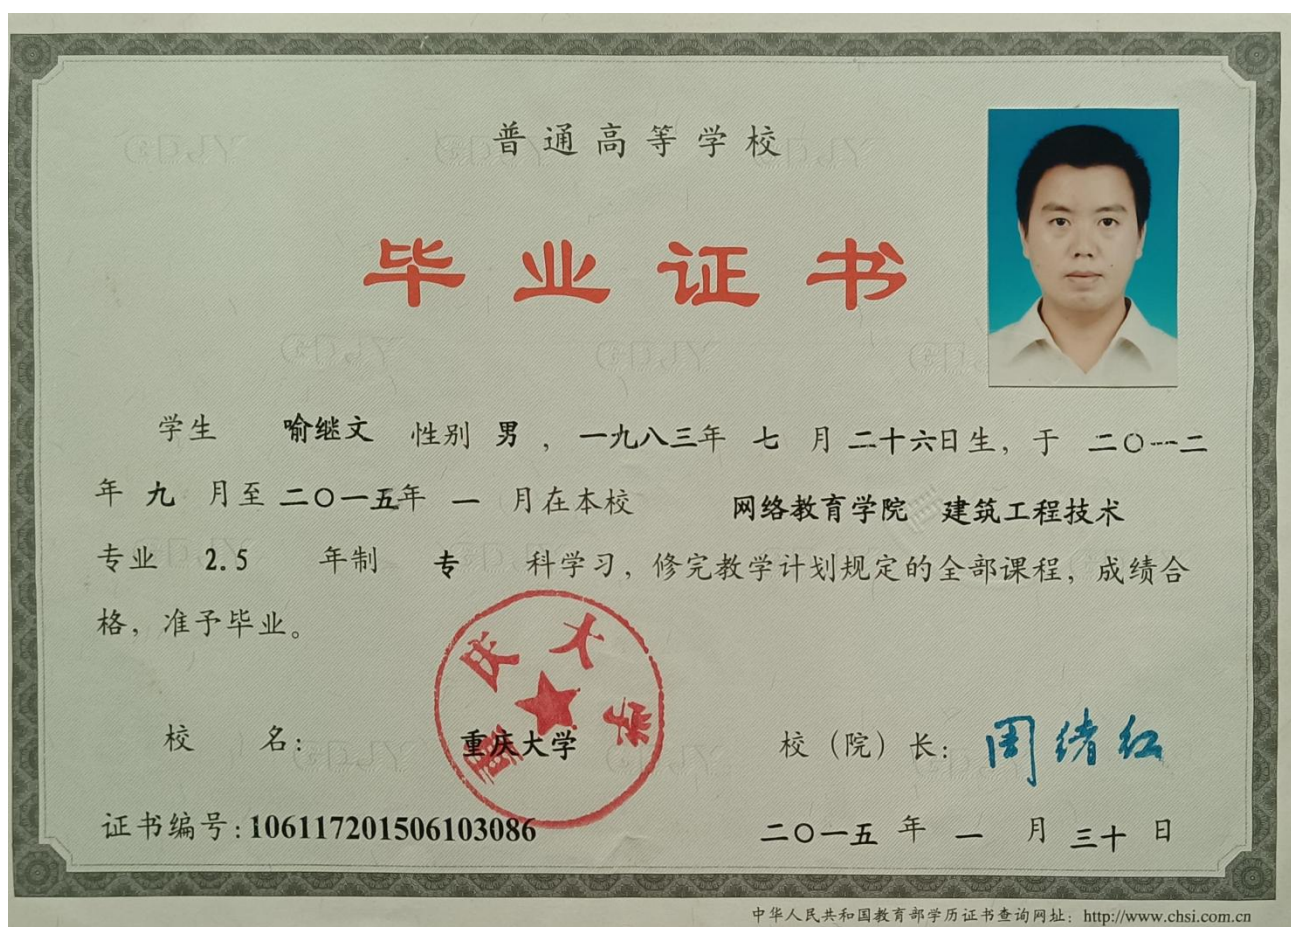 普通高等学校
毕业证书
学生 喻继文 性别 男，一九八三年 七 月 二十六日生，于 二〇一二
年 九 月至 二〇一五年 一 月在本校 网络教育学院 建筑工程技术
专业 2.5 年制 专 科学习，修完教学计划规定的全部课程，成绩合
格，准予毕业。
重庆大学
校 名： 重庆大学 校（院）长：周绪红
证书编号：106117201506103086 二〇一五 年 一 月 三十 日
中华人民共和国教育部学历证书查询网址：http://www.chsi.com.cn